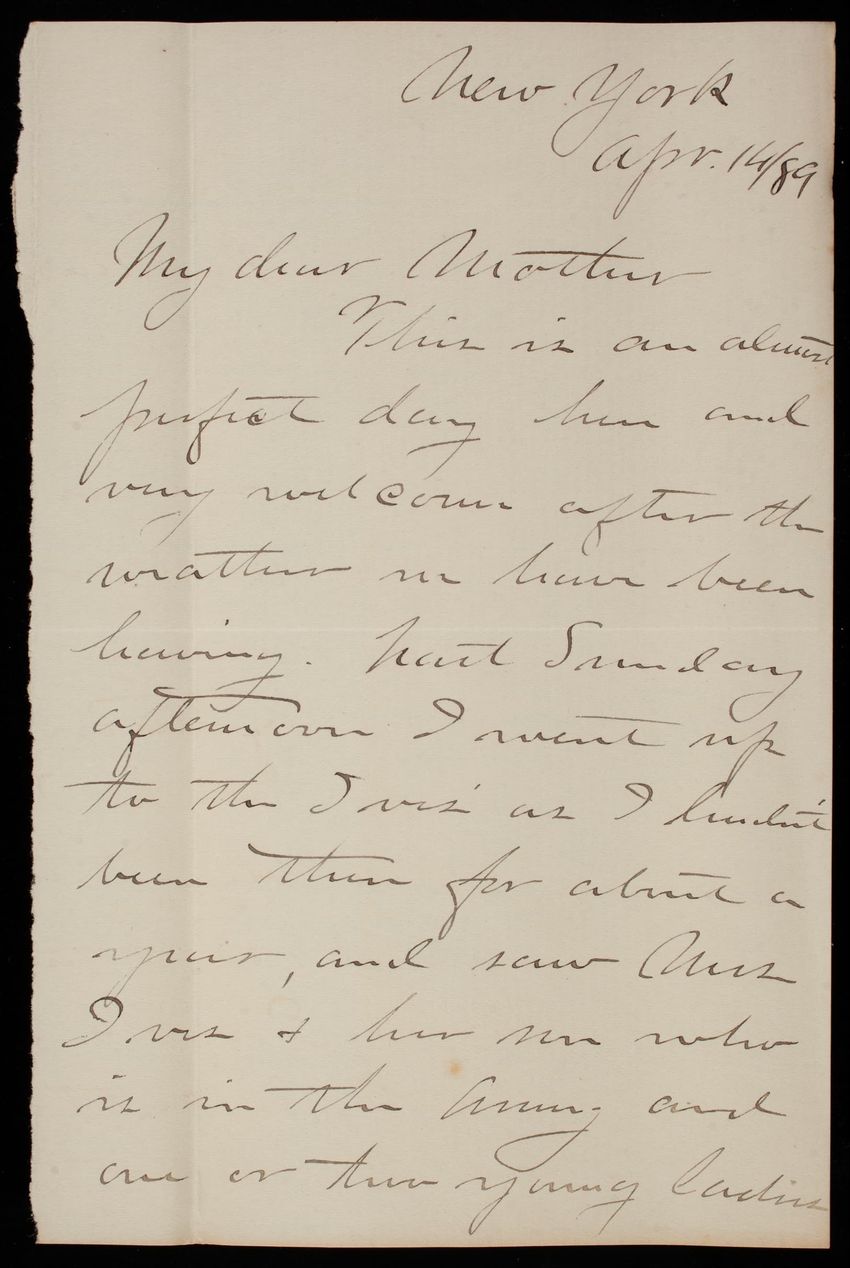 New York
Apr. 14/89
My dear Mother
This is an almost
perfect day here and
very welcome after the
weather we have been
having. Last Sunday
afternoon I went up
to the Ives' as I hadn't
been there for about a
year, and saw Mrs
Ives & her son who
is in the Army and
one or two young ladies